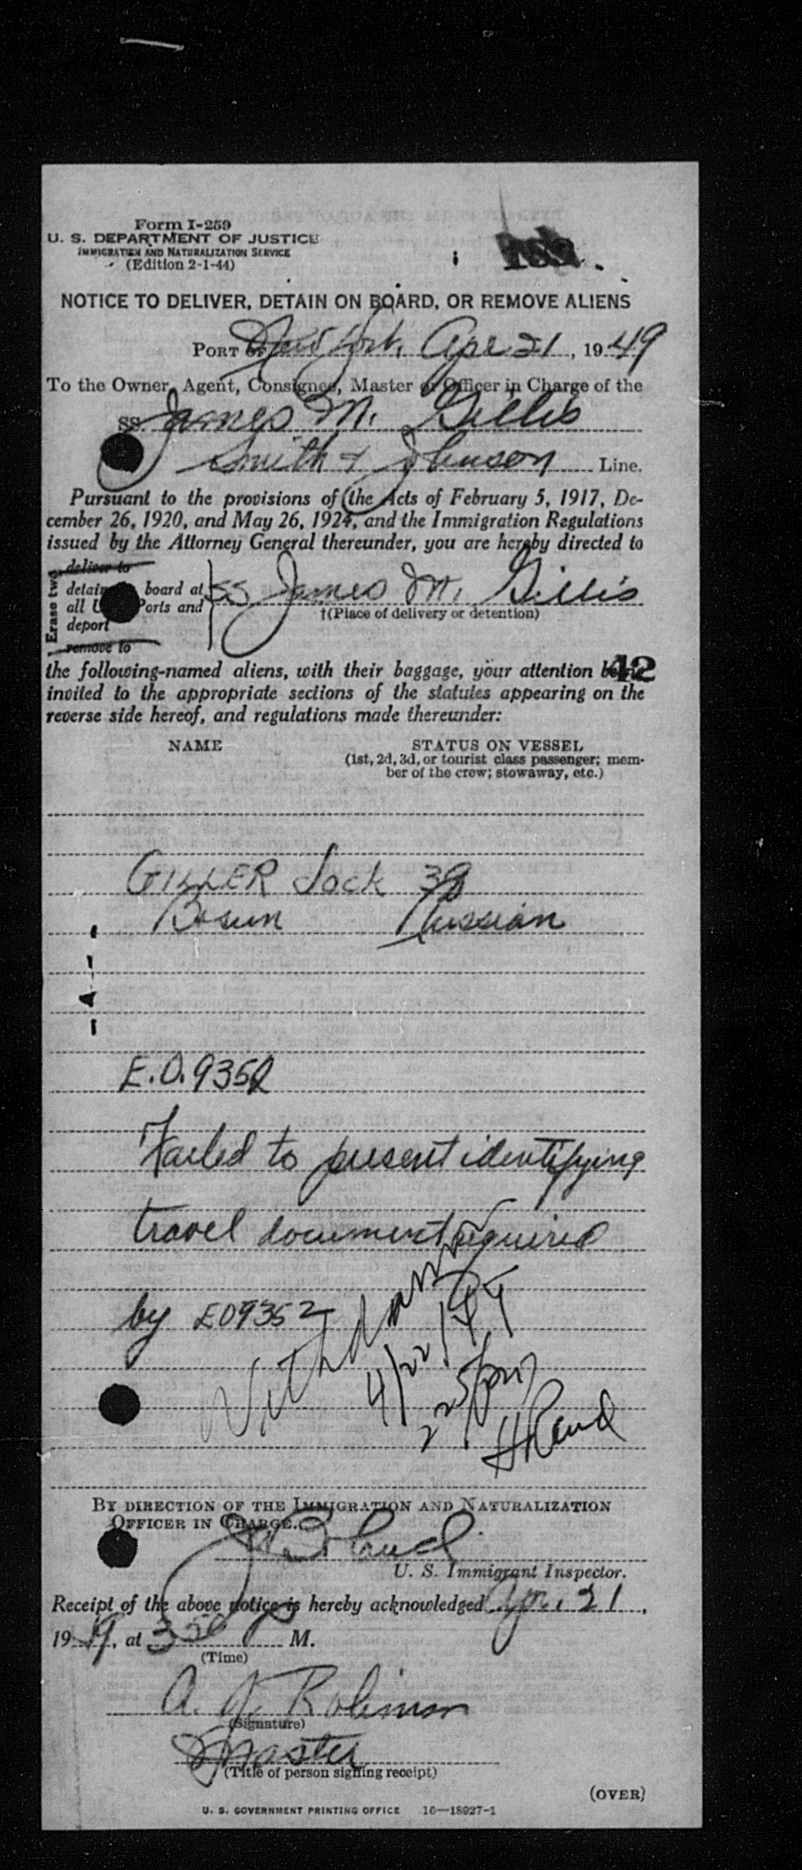 Form I-259
U. S. DEPARTMENT OF JUSTICE
IMMIGRATION AND NATURALIZATION SERVICE
(Edition 2-1-44)
NOTICE TO DELIVER, DETAIN ON BOARD, OR REMOVE ALIENS
PORT OF New York, Apr 21, 1949
To the Owner, Agent, Consignee, Master or Officer in Charge of the
SS James M. Gillis
Smith & Johnson Line.
Pursuant to the provisions of the Acts of February 5, 1917, De-
cember 26, 1920, and May 26, 1924, and the Immigration Regulations
issued by the Attorney General thereunder, you are hereby directed to
Erase two
deliver to
detain on board at
all U. S. Ports and
deport
remove to
SS James M. Gillis
†(Place of delivery or detention)
42
the following-named aliens, with their baggage, your attention being
invited to the appropriate sections of the statutes appearing on the
reverse side hereof, and regulations made thereunder:
NAME STATUS ON VESSEL
(1st, 2d, 3d, or tourist class passenger; mem-
ber of the crew; stowaway, etc.)
GILLER Jack 39
Bosun Russian
- A - -
E.O. 9352
Failed to present identifying
travel document required
by EO9352
Withdrawn
4/22/49
2 25 pm
BY DIRECTION OF THE IMMIGRATION AND NATURALIZATION
OFFICER IN CHARGE.
U. S. Immigrant Inspector.
Receipt of the above notice is hereby acknowledged Apr. 21,
1949, at 3 50 P M.
(Time)
A. Robinson
(Signature)
Master
(Title of person signing receipt)
(OVER)
U. S. GOVERNMENT PRINTING OFFICE 16—18927-1